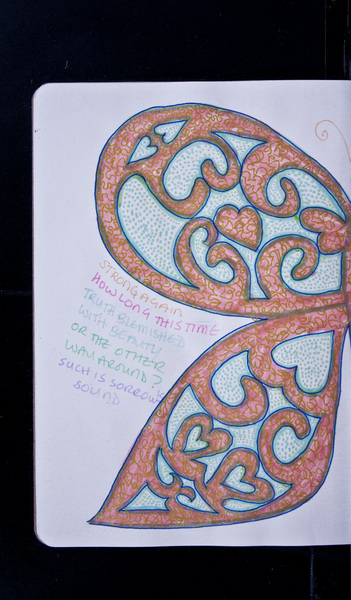 STRONG AGAIN
HOW LONG THIS TIME
TRUTH BLEMISHED
WITH BEAUTY
OR THE OTHER
WAY AROUND?
SUCH IS SORROW'S
SOUND